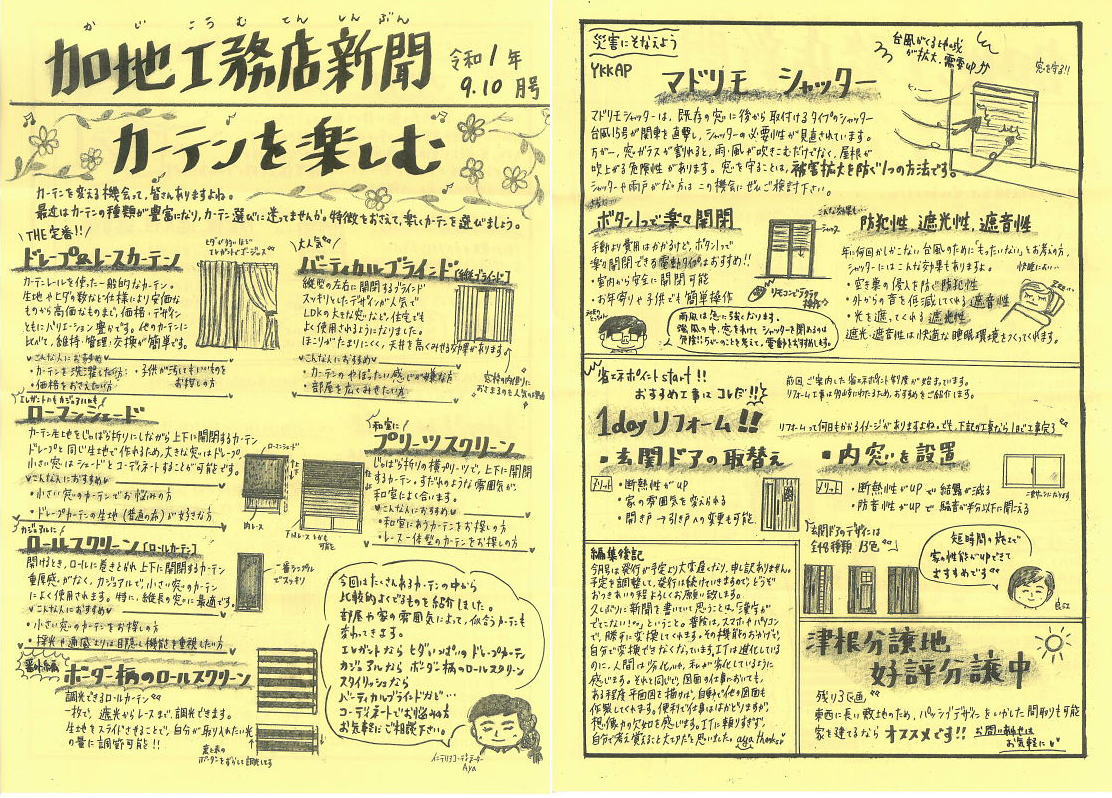 かじこうむてんしんぶん
加地工務店新聞
令和1年
9.10月号
カーテンを楽しむ
カーテンを変える機会って、皆さんありますよね。
最近はカーテンの種類が豊富になり、カーテン選びに迷ってませんか。特徴をおさえて、楽しくカーテンを選びましょう。
THE定番!!
ドレープ&レースカーテン
ヒダが多いほど
エレガントでゴージャス
カーテンレールを使った一般的なカーテン。
生地やヒダの数など仕様により安価な
ものから高価なものまで、価格・デザイン
ともにバリエーション豊かです。他のカーテンに
比べて、維持・管理・交換が簡単です。
こんな人におすすめ
・カーテンを洗濯したい方
・子供が汚してもいいものを
お探しの方
・価格をおさえたい方
大人気
バーティカルブラインド[縦型ブラインド]
縦型の左右に開閉するブラインド
スッキリとしたデザインが人気で
LDKの大きな窓など、住宅でも
よく使用されるようになりました。
ほこりがたまりにくく、天井を高くみせる効果があります。
こんな人におすすめ
・カーテンのやぼったい感じが嫌な方
・部屋を広くみせたい方
窓枠の内側に
おさまるのも人気の理由
エレガントにもカジュアルにも
ローマンシェード
カーテン生地をじゃばら折りにしながら上下に開閉するカーテン
ドレープと同じ生地で作れるため、大きな窓はドレープ
小さい窓はシェードとコーディネートすることが可能です。
こんな人におすすめ
・小さい窓のカーテンでお悩みの方
・ドレープカーテンの生地(普通の布)が好きな方
ローマンシェード
内レース
和室に
プリーツスクリーン
じゃばら折りの横プリーツで、上下に開閉
するカーテン。すだれのような雰囲気が、
和室によく合います。
こんな人におすすめ
・和室にあうカーテンをお探しの方
・レース一体型のカーテンをお探しの方
下はレースも
可能
カジュアルに
ロールスクリーン[ロールカーテン]
開けるとき、ロールに巻きとられ上下に開閉する
重厚感がなく、カジュアルで、小さい窓のカーテン
によく使用されます。特に、縦長の窓に最適です。
こんな人におすすめ
・小さい窓のカーテンをお探しの方
・採光や通風よりは目隠し機能を重視したい方
一番シンプル
でスッキリ
番外編
ボーダー柄のロールスクリーン
調光できるロールカーテン
一枚で、遮光からレースまで、調光できます。
生地をスライドさせることで、自分が取り入れたい光
の量に調節可能!!
裏と表の
ボーダーをずらして調光する
今回はたくさんあるカーテンの中から
比較的よくでるものを紹介しました。
部屋や家の雰囲気によって、似合うカーテンも
変わってきます。
エレガントなら ヒダいっぱいの ドレープカーテン
カジュアルなら ボーダー柄のロールスクリーン
スタイリッシュなら
バーティカルブラインドなど…
コーディネートでお悩みの方
お気軽にご相談下さい。
インテリアコーディネーター
Aya
災害にそなえよう
YKKAP
マドリモ シャッター
台風がくる地域
が拡大、需要UP!!
窓を守る!!
マドリモシャッターは、既存の窓に後から取付けるタイプのシャッター
台風15号が関東を直撃し、シャッターの必要性が見直されています。
万が一、窓ガラスが割れると、雨・風が吹きこむだけでなく、屋根が
吹上がる危険性があります。窓を守ることは、被害拡大を防ぐ1つの方法です。
シャッターや雨戸がない方は この機会にぜひご検討下さい。
ボタン1つで楽々開閉
手動より費用はかかるけど、ボタン1つで
楽々開閉できる電動タイプはおすすめ!!
・室内から安全に開閉可能
・お年寄りや子供でも簡単操作
リモコンでラクラク
操作
シャッター
雨風は急に強くなります。
強風の中、窓をあけてシャッターを閉めるのは
危険!!もしものことを考えて、電動をおすすめします。
こんな効果も…
防犯性、遮光性、遮音性
年に何回かしかこない台風のために「もったいない」とお考え方、
シャッターにはこんな効果もありますよ。
・空き巣の侵入を防ぐ防犯性
・外からの音を低減してくれる遮音性
・光を遮ってくれる遮光性
遮光・遮音性は快適な睡眠環境をつくってくれます。
省エネポイントstart!!
おすすめ工事は コレだ!!
前回ご案内した省エネポイント制度が始まっています。
リフォーム工事は多岐にわたるため、おすすめをご紹介します。
1dayリフォーム!!
リフォームって何日もかかるイメージがありますよね。でも、下記の工事なら1日で工事完了
・玄関ドアの取替え
メリット
・断熱性がup
・家の雰囲気を変えられる
・開き戸→引き戸への変更も可能
・内窓を設置
メリット
・断熱性がupで結露が減る
・防音性がupで騒音が半分以下に聞える
玄関ドアのデザインは
短時間の施工で
家の性能がUPできて
おすすめです
編集後記
今月号は発行が予定より大変遅くなり、申し訳ありません。
予定を調整して、発行は続けていきますので、どうぞ
おつきあいの程よろしくお願い致します。
久しぶりに新聞を書いていて思うことは、「漢字が
でてこない!」ということ。普段は、スマホやパソコン
で、勝手に変換してくれます。その機能のおかげで、
自分で変換できなくなっています。ITは進化している
のに、人間は劣化いや、私が劣化しているように
感じます。それと同じで、図面の仕事においても、
ある程度平面図を描けば、自動で他の図面も
作製してくれます。便利で仕事ははかどりますが、
想像力の欠如を感じます。ITに頼りすぎず、
自分で考え覚えること大切だと思いました。aya thanks
津根分譲地
好評分譲中
残り3区画
東西に長い敷地のため、パッシブデザインをいかした間取りも可能
家を建てるなら オススメです!!
お問い合わせは
お気軽に